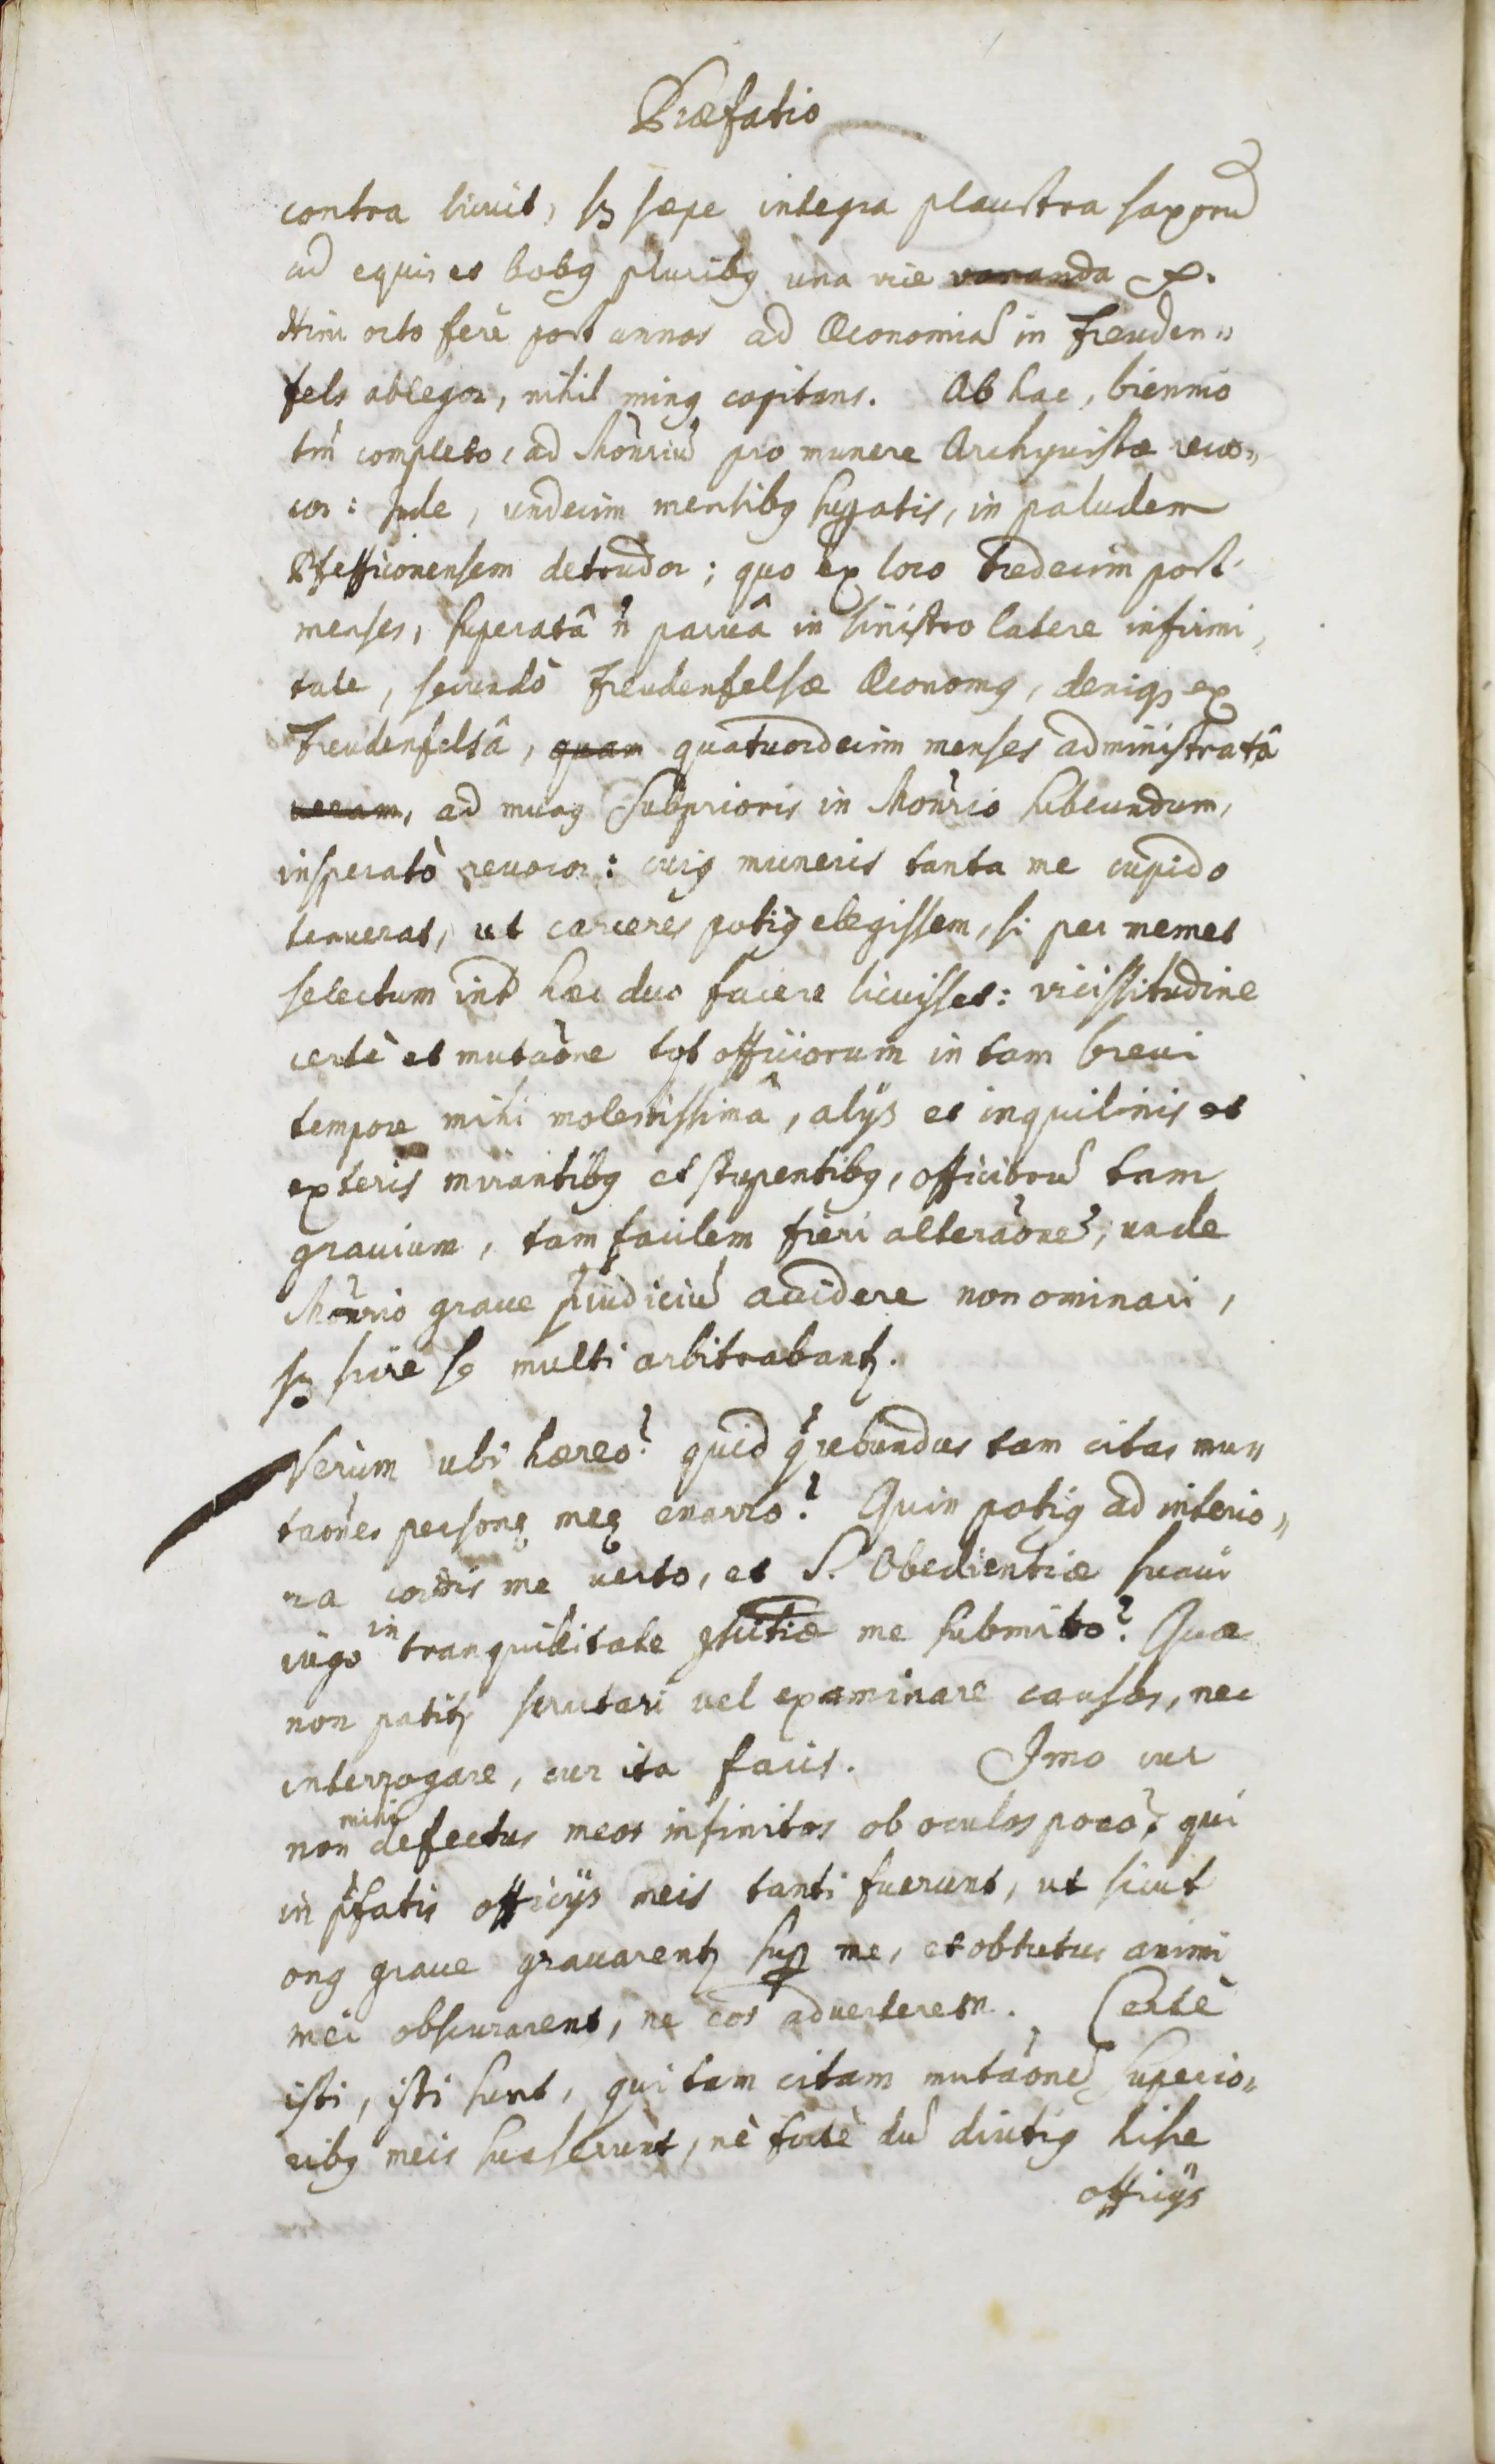 Præfatio
contra licuit, sꝫ sæpe integra plaustra saxorū
ad equis et bobꝯ pluribꝯ una vice vananda ꝛc.
Hinc octo ferè post annos ad Œconomiā in Freuden„
fels ablegor, nihil minꝯ cogitans. Ab hac, biennio
tm̄ completo, ad Mon̄riū pro munere Archyvistæ revo„
cor: Inde, undecim mensibꝯ suꝑatis, in paludem
Pfefficonensem detrudor; quo ex loco tredecim post
menses, superatâ n̄ parvâ in sinistro latere infirmi„
tate, secundò Freudenfelsæ Œconomꝯ, deniqꝫ ex
Freudenfelsâ, quam quatuordecim menses administratâ
veram, ad munꝯ Subprioris in Mon̄rio subeundum,
insperatò revocor: cuiꝯ muneris tanta me cupido
tenuerat, ut carceres potiꝯ elegissem, si per memet
selectum int̄ hæc duo facere licuisset: vicissitudine
certè et mutaōne tot officiorum in tam brevi
tempore mihi molestissimâ, alijs et inquilinis et
exteris mirantibꝯ et stupentibꝯ, officiorū tam
gravium, tam facilem fieri alteraōnē, unde
Mon̄rio grave p̄iudiciū accidere non ominari,
sꝫ scire se multi arbitrabantꝭ.
Verùm ubi hæreo? quid q̄rebundus tam citas mu„
taōnes personę meę enarro? Quin potiꝯ ad interio„
ra cordis me verto, et S. Obedientiæ suavi
iugo in tranquilitate ꝯscītiæ me submitto? Quæ
non patitꝭ scrutari vel examinare causas, nec
interrogare, cur ita facis. Imo cur
non mihi defectus meos infinitos ob oculos pono? qui
in p̄fatis officijs meis tanti fuerunt, ut sicut
onꝯ grave gravarentꝭ suꝑ me, et obtutus animi
mei obscurarent, ne eos adverterem. Certè
isti, isti sunt, qui tam citam mutaōnē superio„
ribꝯ meis suaserunt, nè fortè dū diutiꝯ hisce
officijs